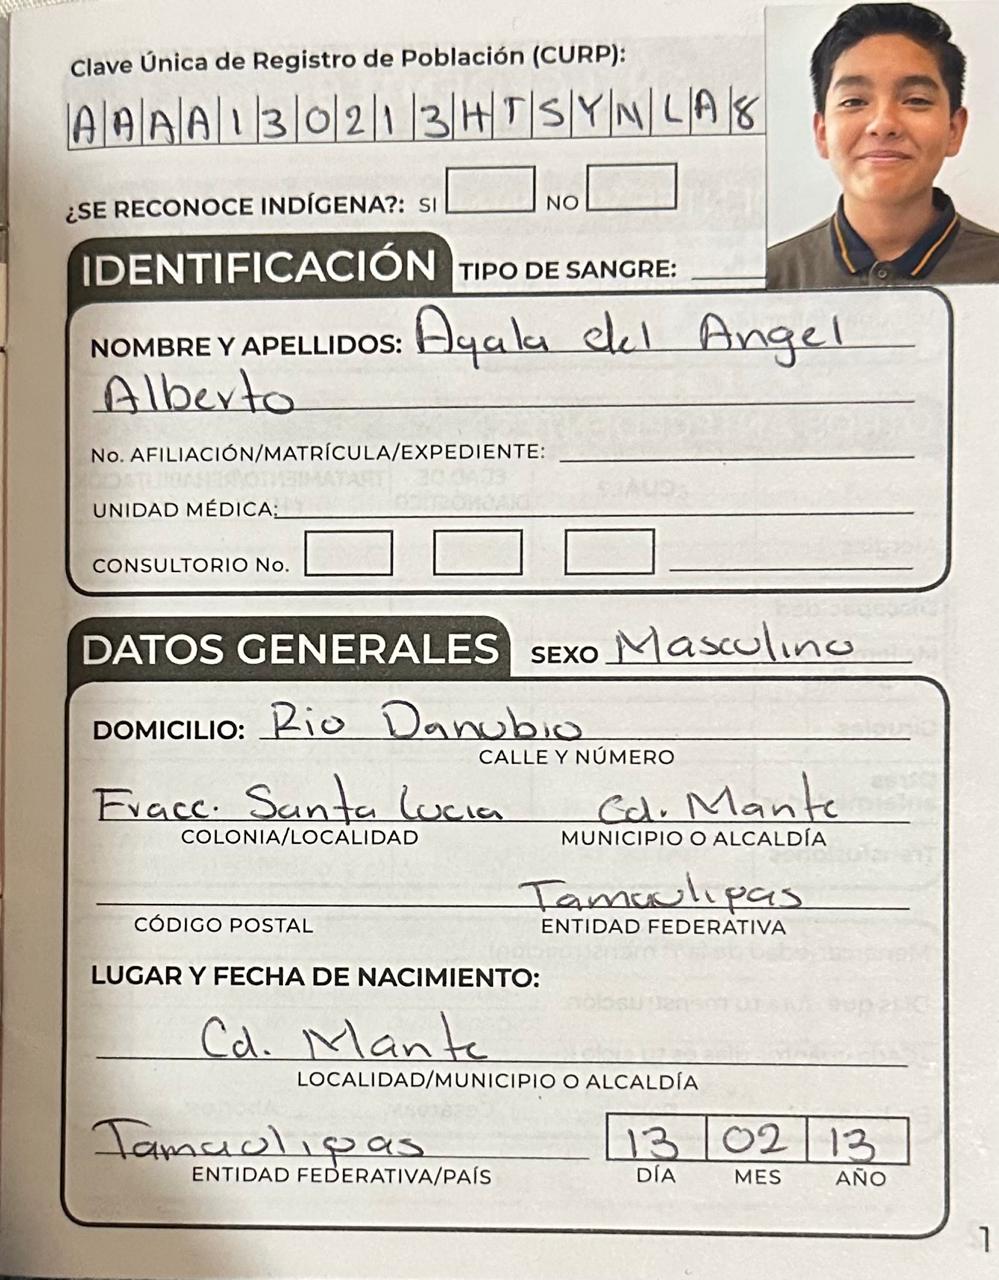 Clave Única de Registro de Población (CURP):
AAAA130213HTSYNLA8
¿SE RECONOCE INDÍGENA?: SI NO
IDENTIFICACIÓN TIPO DE SANGRE:
NOMBRE Y APELLIDOS: Ayala del Angel
Alberto
No. AFILIACIÓN/MATRÍCULA/EXPEDIENTE:
UNIDAD MÉDICA:
CONSULTORIO No.
DATOS GENERALES SEXO Masculino
DOMICILIO: Rio Danubio
CALLE Y NÚMERO
Fracc. Santa Lucia Cd. Mante
COLONIA/LOCALIDAD MUNICIPIO O ALCALDÍA
Tamaulipas
CÓDIGO POSTAL ENTIDAD FEDERATIVA
LUGAR Y FECHA DE NACIMIENTO:
Cd. Mante
LOCALIDAD/MUNICIPIO O ALCALDÍA
Tamaulipas 13 02 13
ENTIDAD FEDERATIVA/PAÍS DÍA MES AÑO
1